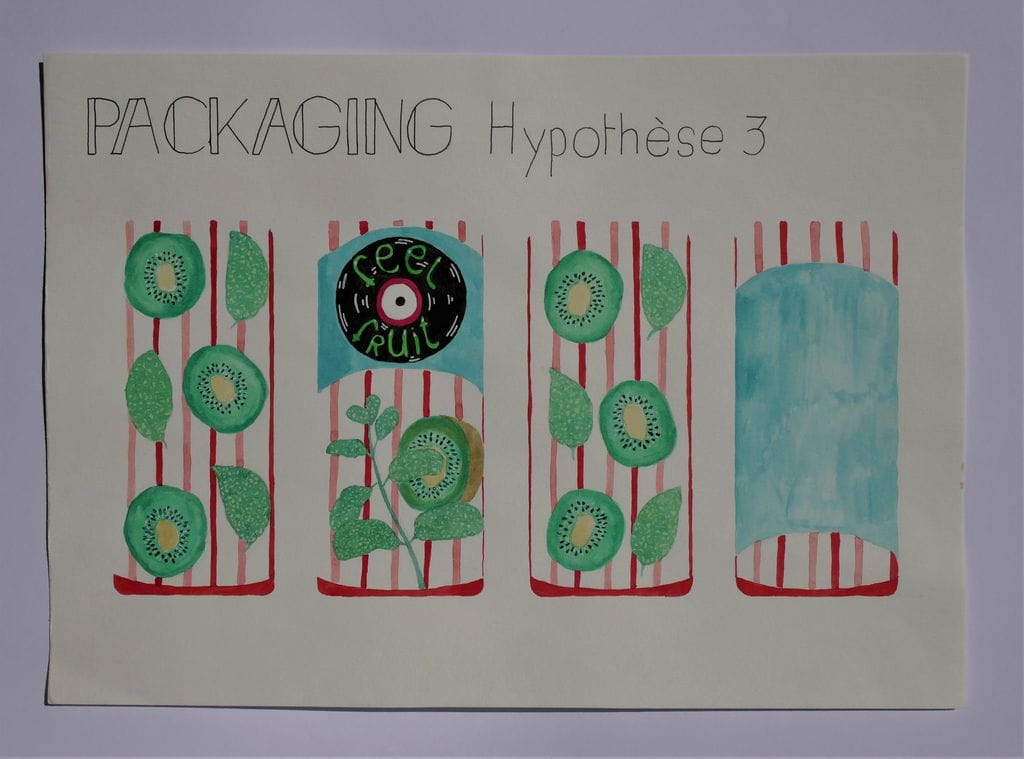 PACKAGING Hypothèse 3
feel
fRuit